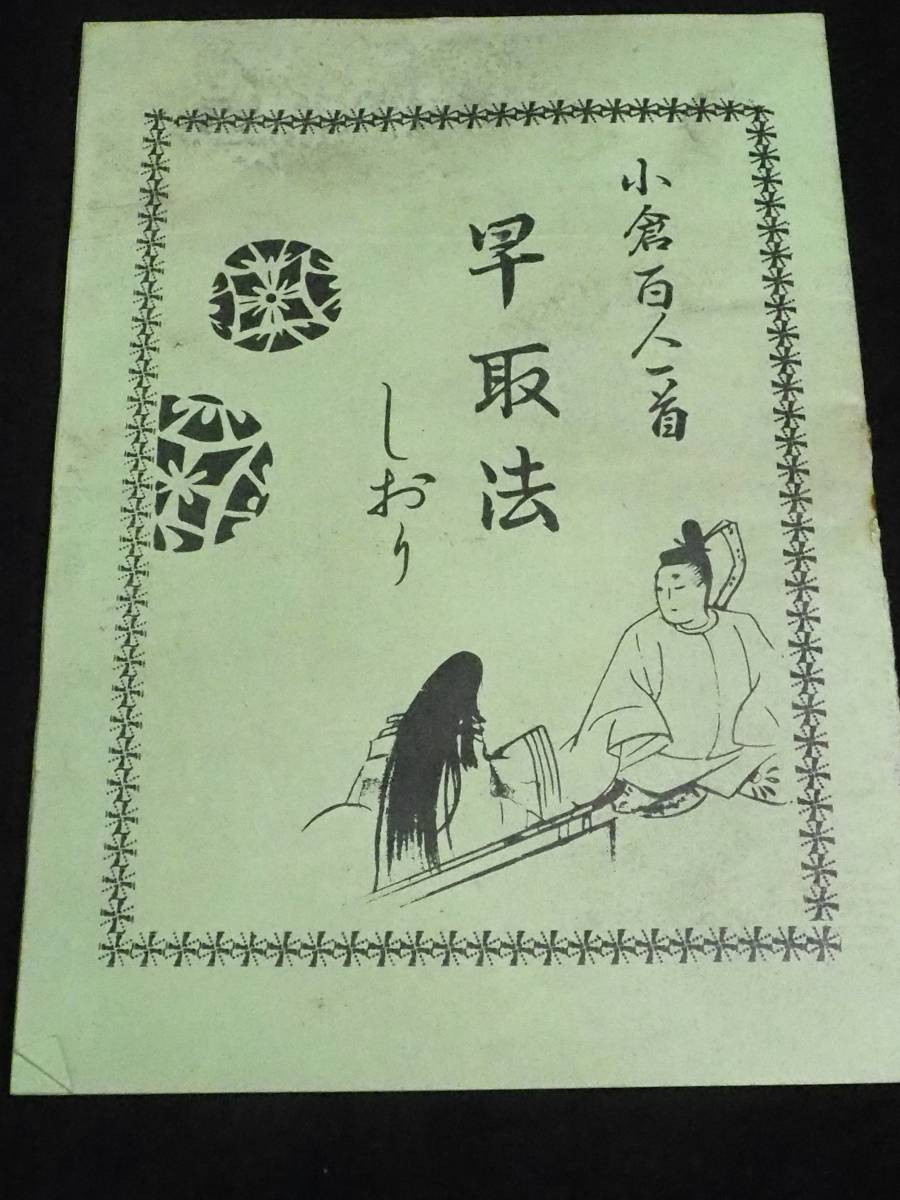 小倉百人一首
早取法
しおり